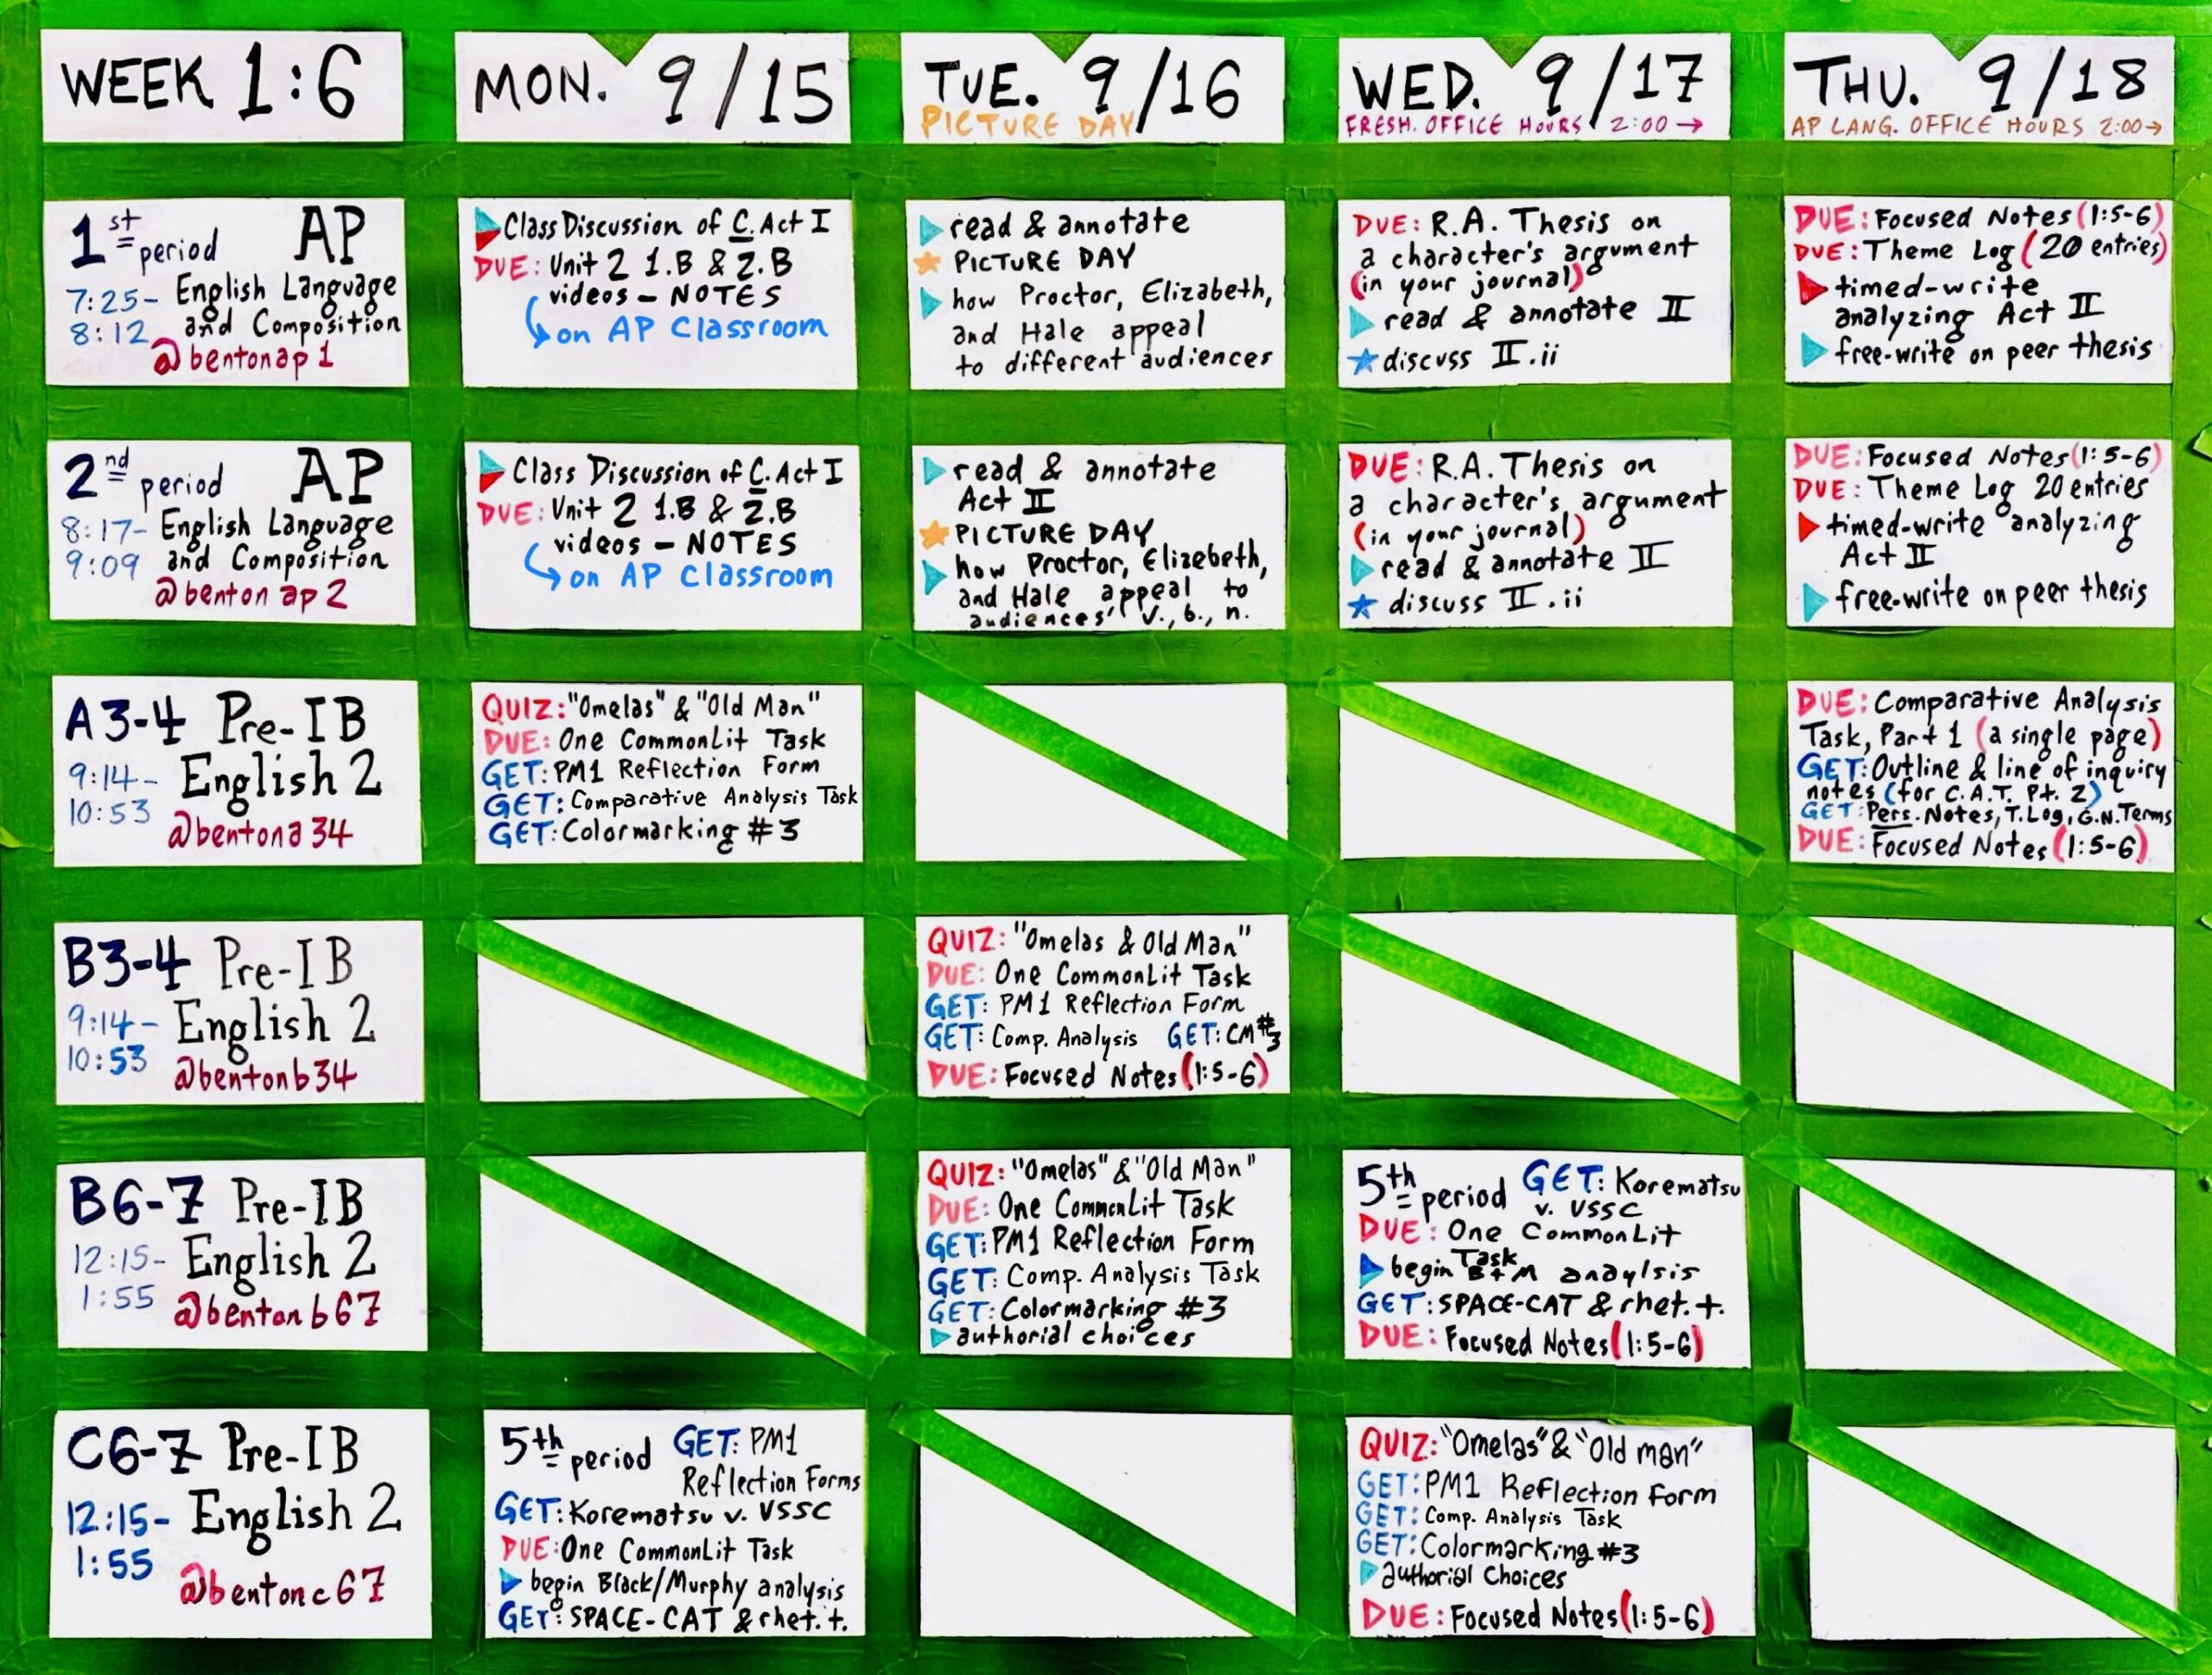 WEEK 1:6
MON. 9/15
TUE. 9/16
PICTURE DAY
WED. 9/17
FRESH. OFFICE HOURS 2:00 →
THU. 9/18
AP LANG. OFFICE HOURS 2:00→
1st period AP
7:25- English Language
8:12 and Composition
@bentonap1
Class Discussion of C. Act I
DUE: Unit 2 1.B & 2.B
videos - NOTES
on AP Classroom
read & annotate
PICTURE DAY
how Proctor, Elizabeth,
and Hale appeal
to different audiences
DUE: R.A. Thesis on
a character's argument
(in your journal)
read & annotate II
discuss II.ii
DUE: Focused Notes (1:5-6)
DUE: Theme Log (20 entries)
timed-write
analyzing Act II
free-write on peer thesis
2nd period AP
8:17- English Language
9:09 and Composition
@bentonap2
Class Discussion of C. Act I
DUE: Unit 2 1.B & 2.B
videos - NOTES
on AP Classroom
read & annotate
Act II
PICTURE DAY
how Proctor, Elizebeth,
and Hale appeal to
audiences' v., b., n.
DUE: R.A. Thesis on
a character's argument
(in your journal)
read & annotate II
discuss II.ii
DUE: Focused Notes (1:5-6)
DUE: Theme Log 20 entries
timed-write analyzing
Act II
free-write on peer thesis
A3-4 Pre-IB
9:14- English 2
10:53
@bentona34
QUIZ: "Omelas" & "Old Man"
DUE: One CommonLit Task
GET: PM1 Reflection Form
GET: Comparative Analysis Task
GET: Colormarking #3
DUE: Comparative Analysis
Task, Part 1 (a single page)
GET: Outline & line of inquiry
notes (for C.A.T. Pt. 2)
GET: Pers. Notes, T.Log, G.N.Terms
DUE: Focused Notes (1:5-6)
B3-4 Pre-IB
9:14- English 2
10:53
@bentonb34
QUIZ: "Omelas & Old Man"
DUE: One CommonLit Task
GET: PM1 Reflection Form
GET: Comp. Analysis GET: CM#3
DUE: Focused Notes (1:5-6)
B6-7 Pre-IB
12:15- English 2
1:55
@bentonb67
QUIZ: "Omelas" & "Old Man"
DUE: One CommonLit Task
GET: PM1 Reflection Form
GET: Comp. Analysis Task
GET: Colormarking #3
authorial choices
5th period GET: Korematsu
v. VSSC
DUE: One CommonLit
Task
begin B+M anaylsis
GET: SPACE-CAT & rhet. t.
DUE: Focused Notes (1:5-6)
C6-7 Pre-IB
12:15- English 2
1:55
@bentonc67
5th period GET: PM1
Reflection Forms
GET: Korematsu v. VSSC
DUE: One CommonLit Task
begin Black/Murphy analysis
GET: SPACE-CAT & rhet. t.
QUIZ: "Omelas" & "Old man"
GET: PM1 Reflection Form
GET: Comp. Analysis Task
GET: Colormarking #3
authorial Choices
DUE: Focused Notes (1:5-6)